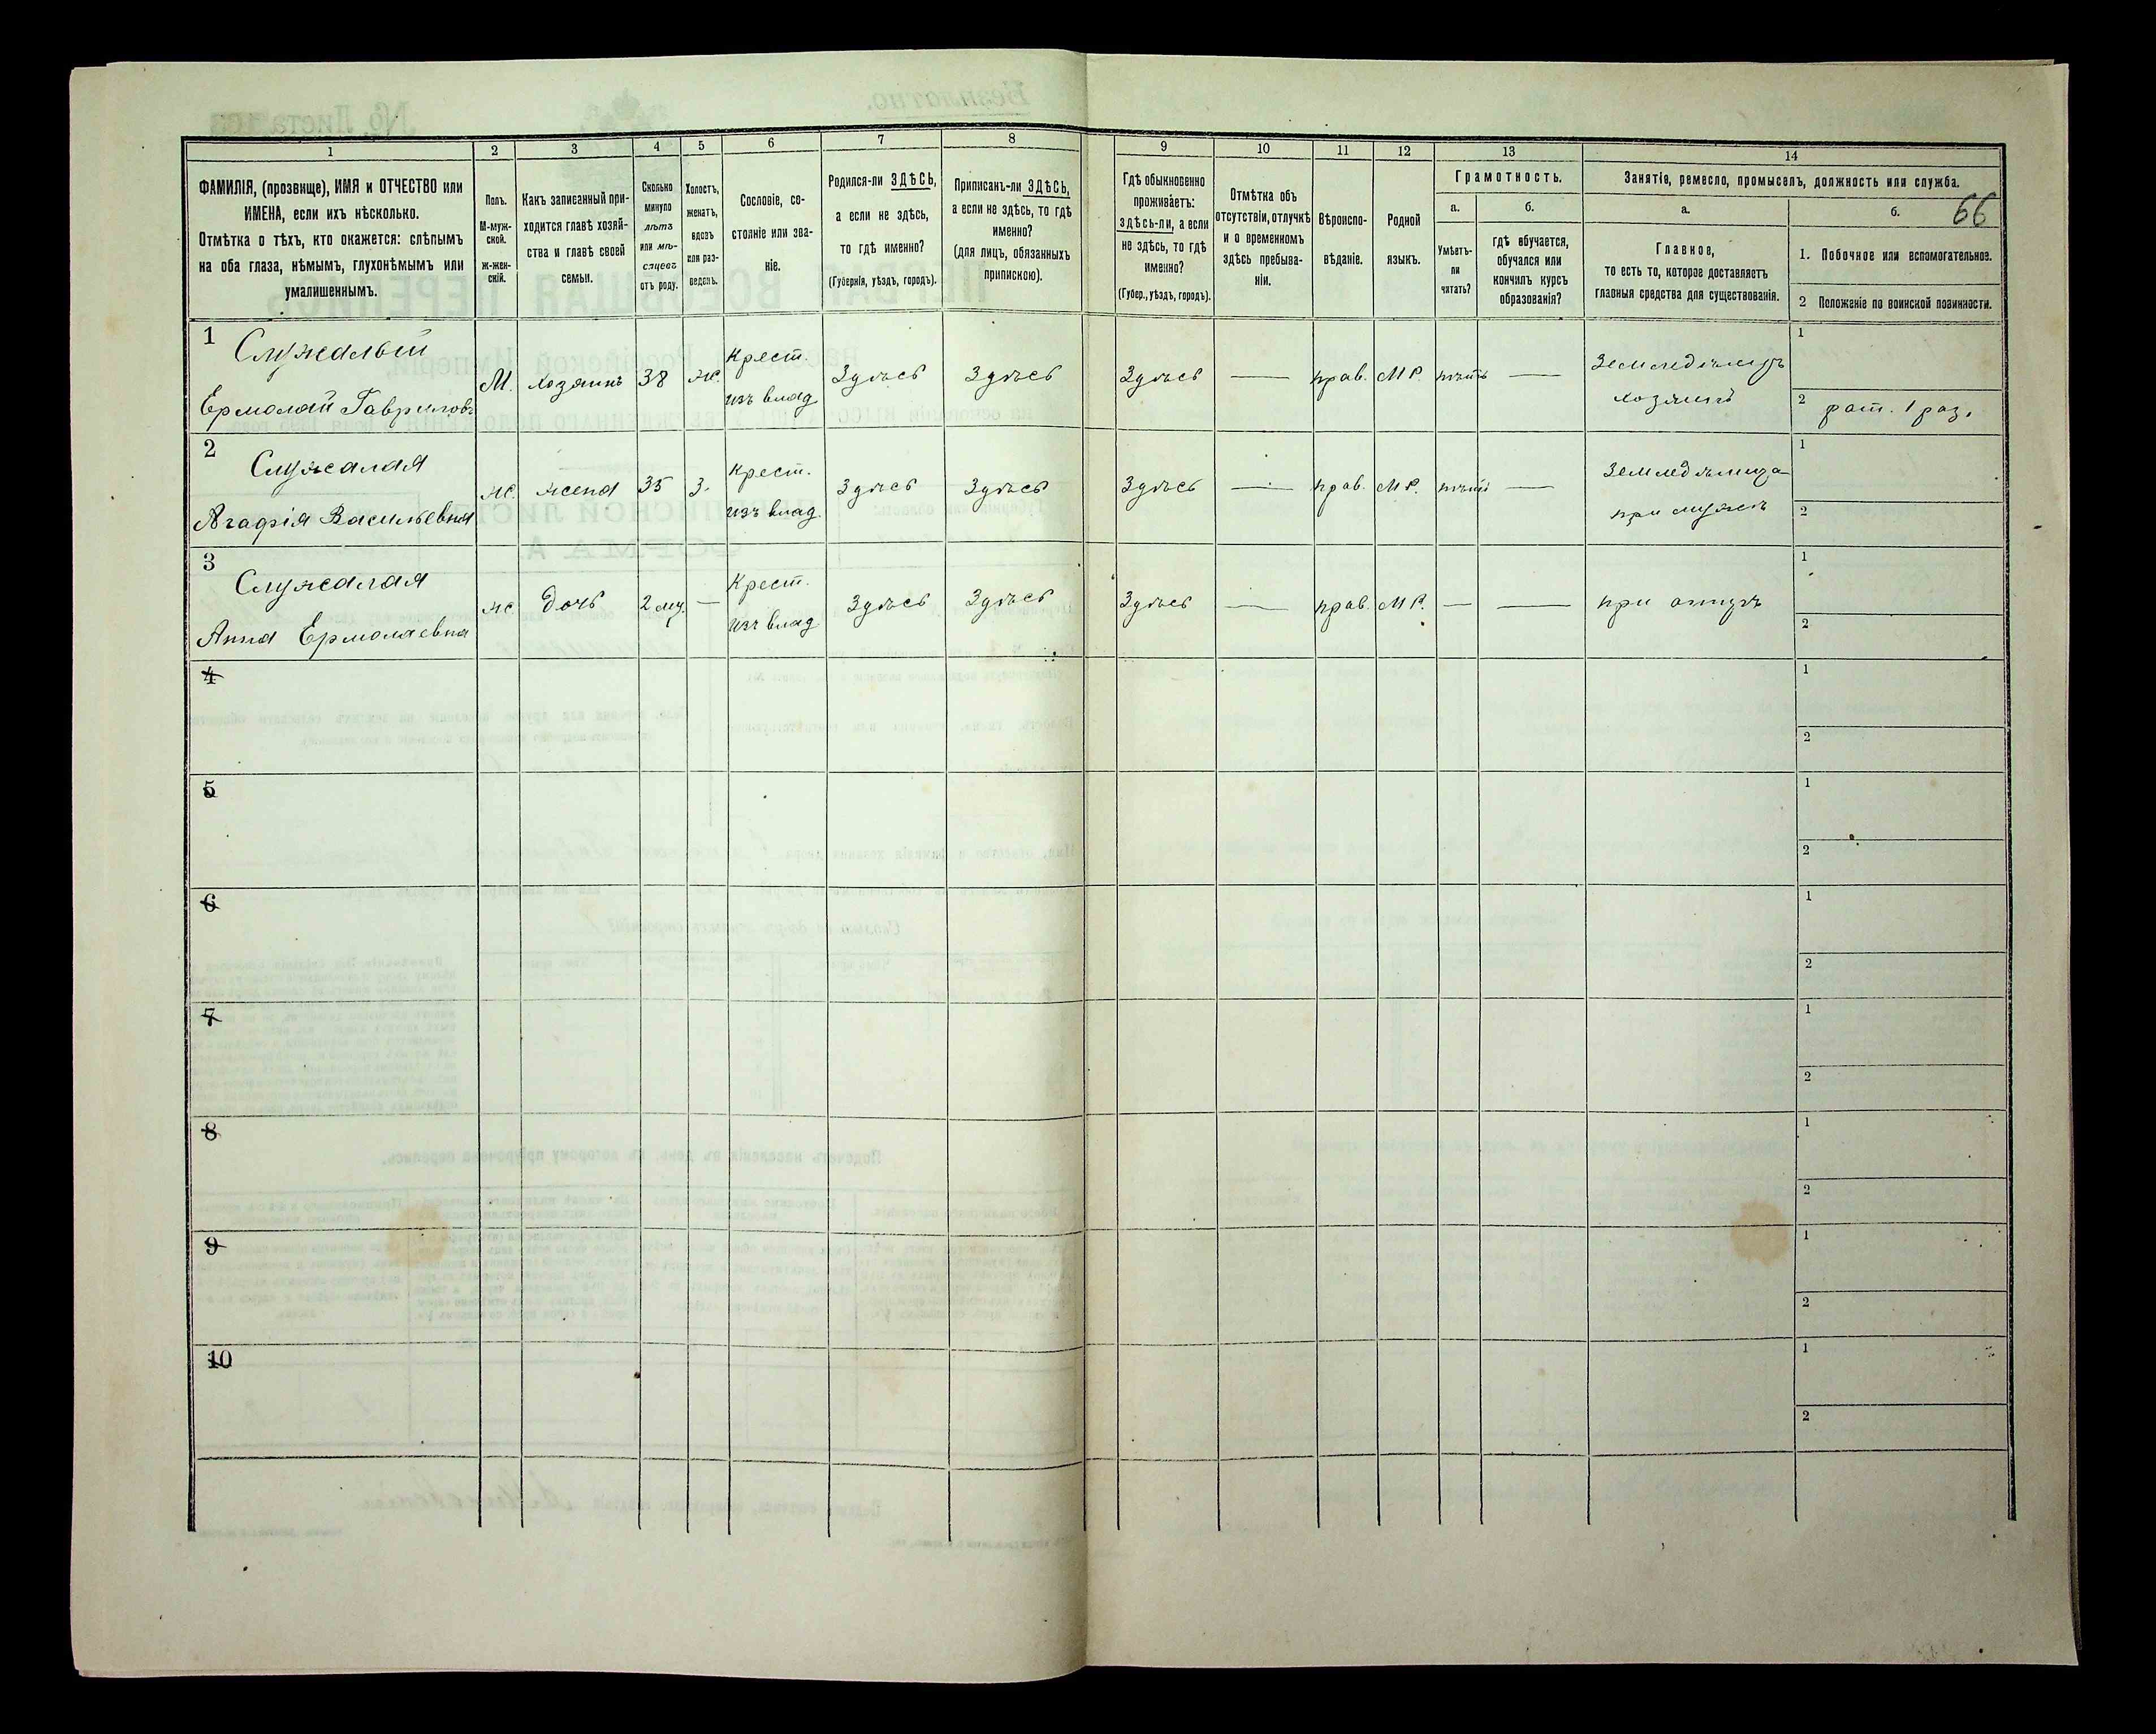 66
1 2 3 4 5 6 7 8 9 10 11 12 13 14
ФАМИЛІЯ, (прозвище), ИМЯ и ОТЧЕСТВО или
ИМЕНА, если ихъ нѣсколько.
Отмѣтка о тѣхъ, кто окажется: слѣпымъ
на оба глаза, нѣмымъ, глухонѣмымъ или
умалишеннымъ.
Полъ.
М-муж-
ской.
ж-жен-
скій.
Какъ записанный при-
ходится главѣ хозяй-
ства и главѣ своей
семьи.
Сколько
минуло
лѣтъ
или мѣ-
сяцевъ
отъ роду.
Холостъ,
женатъ,
вдовъ
или раз-
веденъ.
Сословіе, со-
стояніе или зва-
ніе.
Родился-ли ЗДѢСЬ,
а если не здѣсь,
то гдѣ именно?
(Губернія, уѣздъ, городъ).
Приписанъ-ли ЗДѢСЬ,
а если не здѣсь, то гдѣ
именно?
(для лицъ, обязанныхъ
припискою).
Гдѣ обыкновенно
проживаетъ:
здѣсь-ли, а если
не здѣсь, то гдѣ
именно?
(Губер., уѣздъ, городъ).
Отмѣтка объ
отсутствіи, отлучкѣ
и о временномъ
здѣсь пребыва-
ніи.
Вѣроиспо-
вѣданіе.
Родной
языкъ.
Грамотность.
а.
Умѣетъ-
ли
читать?
б.
гдѣ обучается,
обучался или
кончилъ курсъ
образованія?
Занятіе, ремесло, промыселъ, должность или служба.
а.
Главное,
то есть то, которое доставляетъ
главныя средства для существованія.
б.
1. Побочное или вспомогательное.
2 Положеніе по воинской повинности.
1
Служалый
Ермолай Гавриловъ
М. хозяинъ 38 ж.
Крест.
изъ влад.
Здѣсь Здѣсь Здѣсь — прав. МР. нѣтъ —
Земледѣлецъ
хозяинъ
1
2 рат. 1 раз.
2
Служалая
Агафія Васильевна
ж. жена 35 з.
Крест.
изъ влад.
Здѣсь Здѣсь Здѣсь — прав. МР. нѣтъ —
Земледѣлица
при мужѣ
1
2
3
Служалая
Анна Ермолаевна
ж. дочь 2 мц. —
Крест.
изъ влад
Здѣсь Здѣсь Здѣсь — прав. МР. — —
при отцѣ
1
2
4
1
2
5
1
2
6
1
2
7
1
2
8
1
2
9
1
2
10
1
2